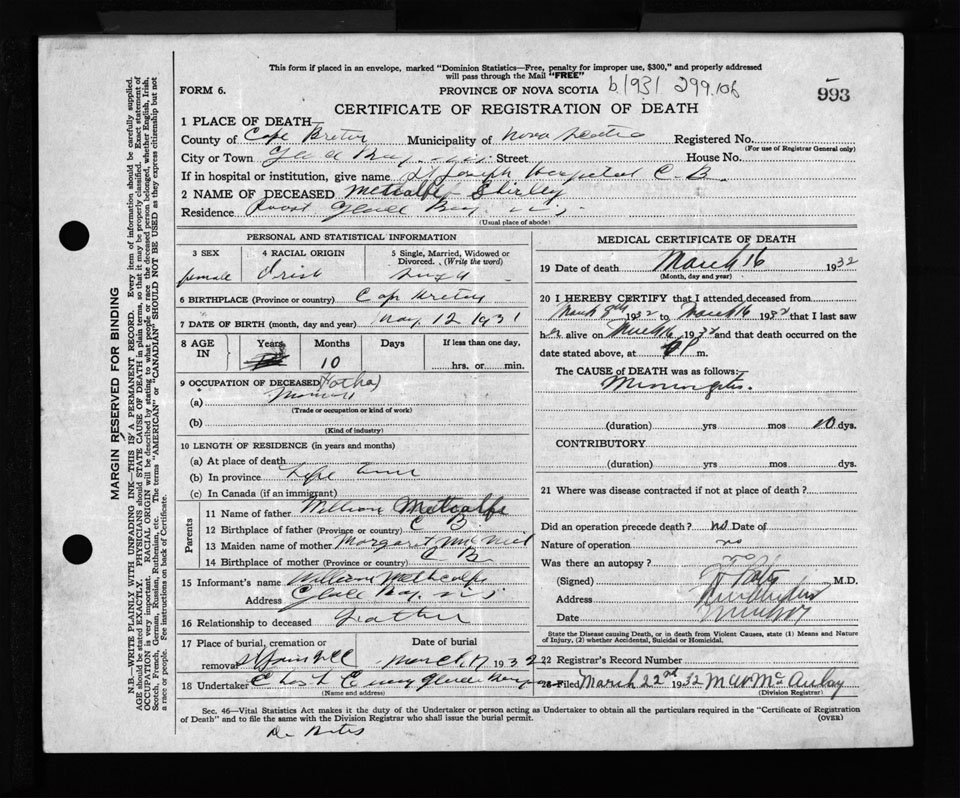 This form if placed in an envelope, marked "Dominion Statistics—Free, penalty for improper use, $300," and properly addressed
will pass through the Mail "FREE"
FORM 6. PROVINCE OF NOVA SCOTIA b1931 299.106 993
CERTIFICATE OF REGISTRATION OF DEATH
1 PLACE OF DEATH
County of Cape Breton Municipality of Nova Scotia Registered No.
(For use of Registrar General only)
City or Town Glace Bay Street House No.
If in hospital or institution, give name St Joseph Hospital C. B.
2 NAME OF DECEASED Metcalfe Shirley
Residence Glace Bay N.S
(Usual place of abode)
PERSONAL AND STATISTICAL INFORMATION
3 SEX 4 RACIAL ORIGIN 5 Single, Married, Widowed or Divorced. (Write the word)
female Irish Single
6 BIRTHPLACE (Province or country) Cape Breton
7 DATE OF BIRTH (month, day and year) May 12 1931
8 AGE IN Years Months Days If less than one day,
10 hrs. or min.
9 OCCUPATION OF DECEASED
(a)
(Trade or occupation or kind of work)
(b)
(Kind of industry)
10 LENGTH OF RESIDENCE (in years and months)
(a) At place of death
(b) In province Life time
(c) In Canada (if an immigrant)
Parents
11 Name of father William Metcalfe
12 Birthplace of father (Province or country) C B.
13 Maiden name of mother Margaret McNeil
14 Birthplace of mother (Province or country) C B.
15 Informant's name William Methcalfe
Address Glace Bay, N.S
16 Relationship to deceased Father
17 Place of burial, cremation or removal Date of burial
March 17 1932
18 Undertaker Glace Bay
(Name and address)
MEDICAL CERTIFICATE OF DEATH
19 Date of death March 16 1932
(Month, day and year)
20 I HEREBY CERTIFY that I attended deceased from
March 1932 to March 16 1932 that I last saw
her alive on March 16 1932 and that death occurred on the
date stated above, at P m.
The CAUSE of DEATH was as follows:
Meningitis.
(duration) yrs mos 10 dys.
CONTRIBUTORY
(duration) yrs mos dys.
21 Where was disease contracted if not at place of death?
Did an operation precede death? no Date of
Nature of operation no
Was there an autopsy? no
(Signed) M.D.
Address
Date
State the Disease causing Death, or in death from Violent Causes, state (1) Means and Nature
of Injury, (2) whether Accidental, Suicidal or Homicidal.
22 Registrar's Record Number
Filed March 22nd 1932 McAulay
(Division Registrar)
Sec. 46—Vital Statistics Act makes it the duty of the Undertaker or person acting as Undertaker to obtain all the particulars required in the "Certificate of Registration
of Death" and to file the same with the Division Registrar who shall issue the burial permit. (OVER)
MARGIN RESERVED FOR BINDING
N.B.—WRITE PLAINLY WITH UNFADING INK—THIS IS A PERMANENT RECORD. Every item of information should be carefully supplied.
AGE should be stated EXACTLY. PHYSICIANS should STATE CAUSE OF DEATH in plain terms, so that it may be properly classified. Exact statement of
OCCUPATION is very important. RACIAL ORIGIN will be described by stating to what people or race the deceased person belonged, whether English, Irish,
Scotch, French, German, Russian, Ruthenian, etc. The terms "AMERICAN" or "CANADIAN" SHOULD NOT BE USED as they express citizenship but not
a race or people. See instructions on back of Certificate.